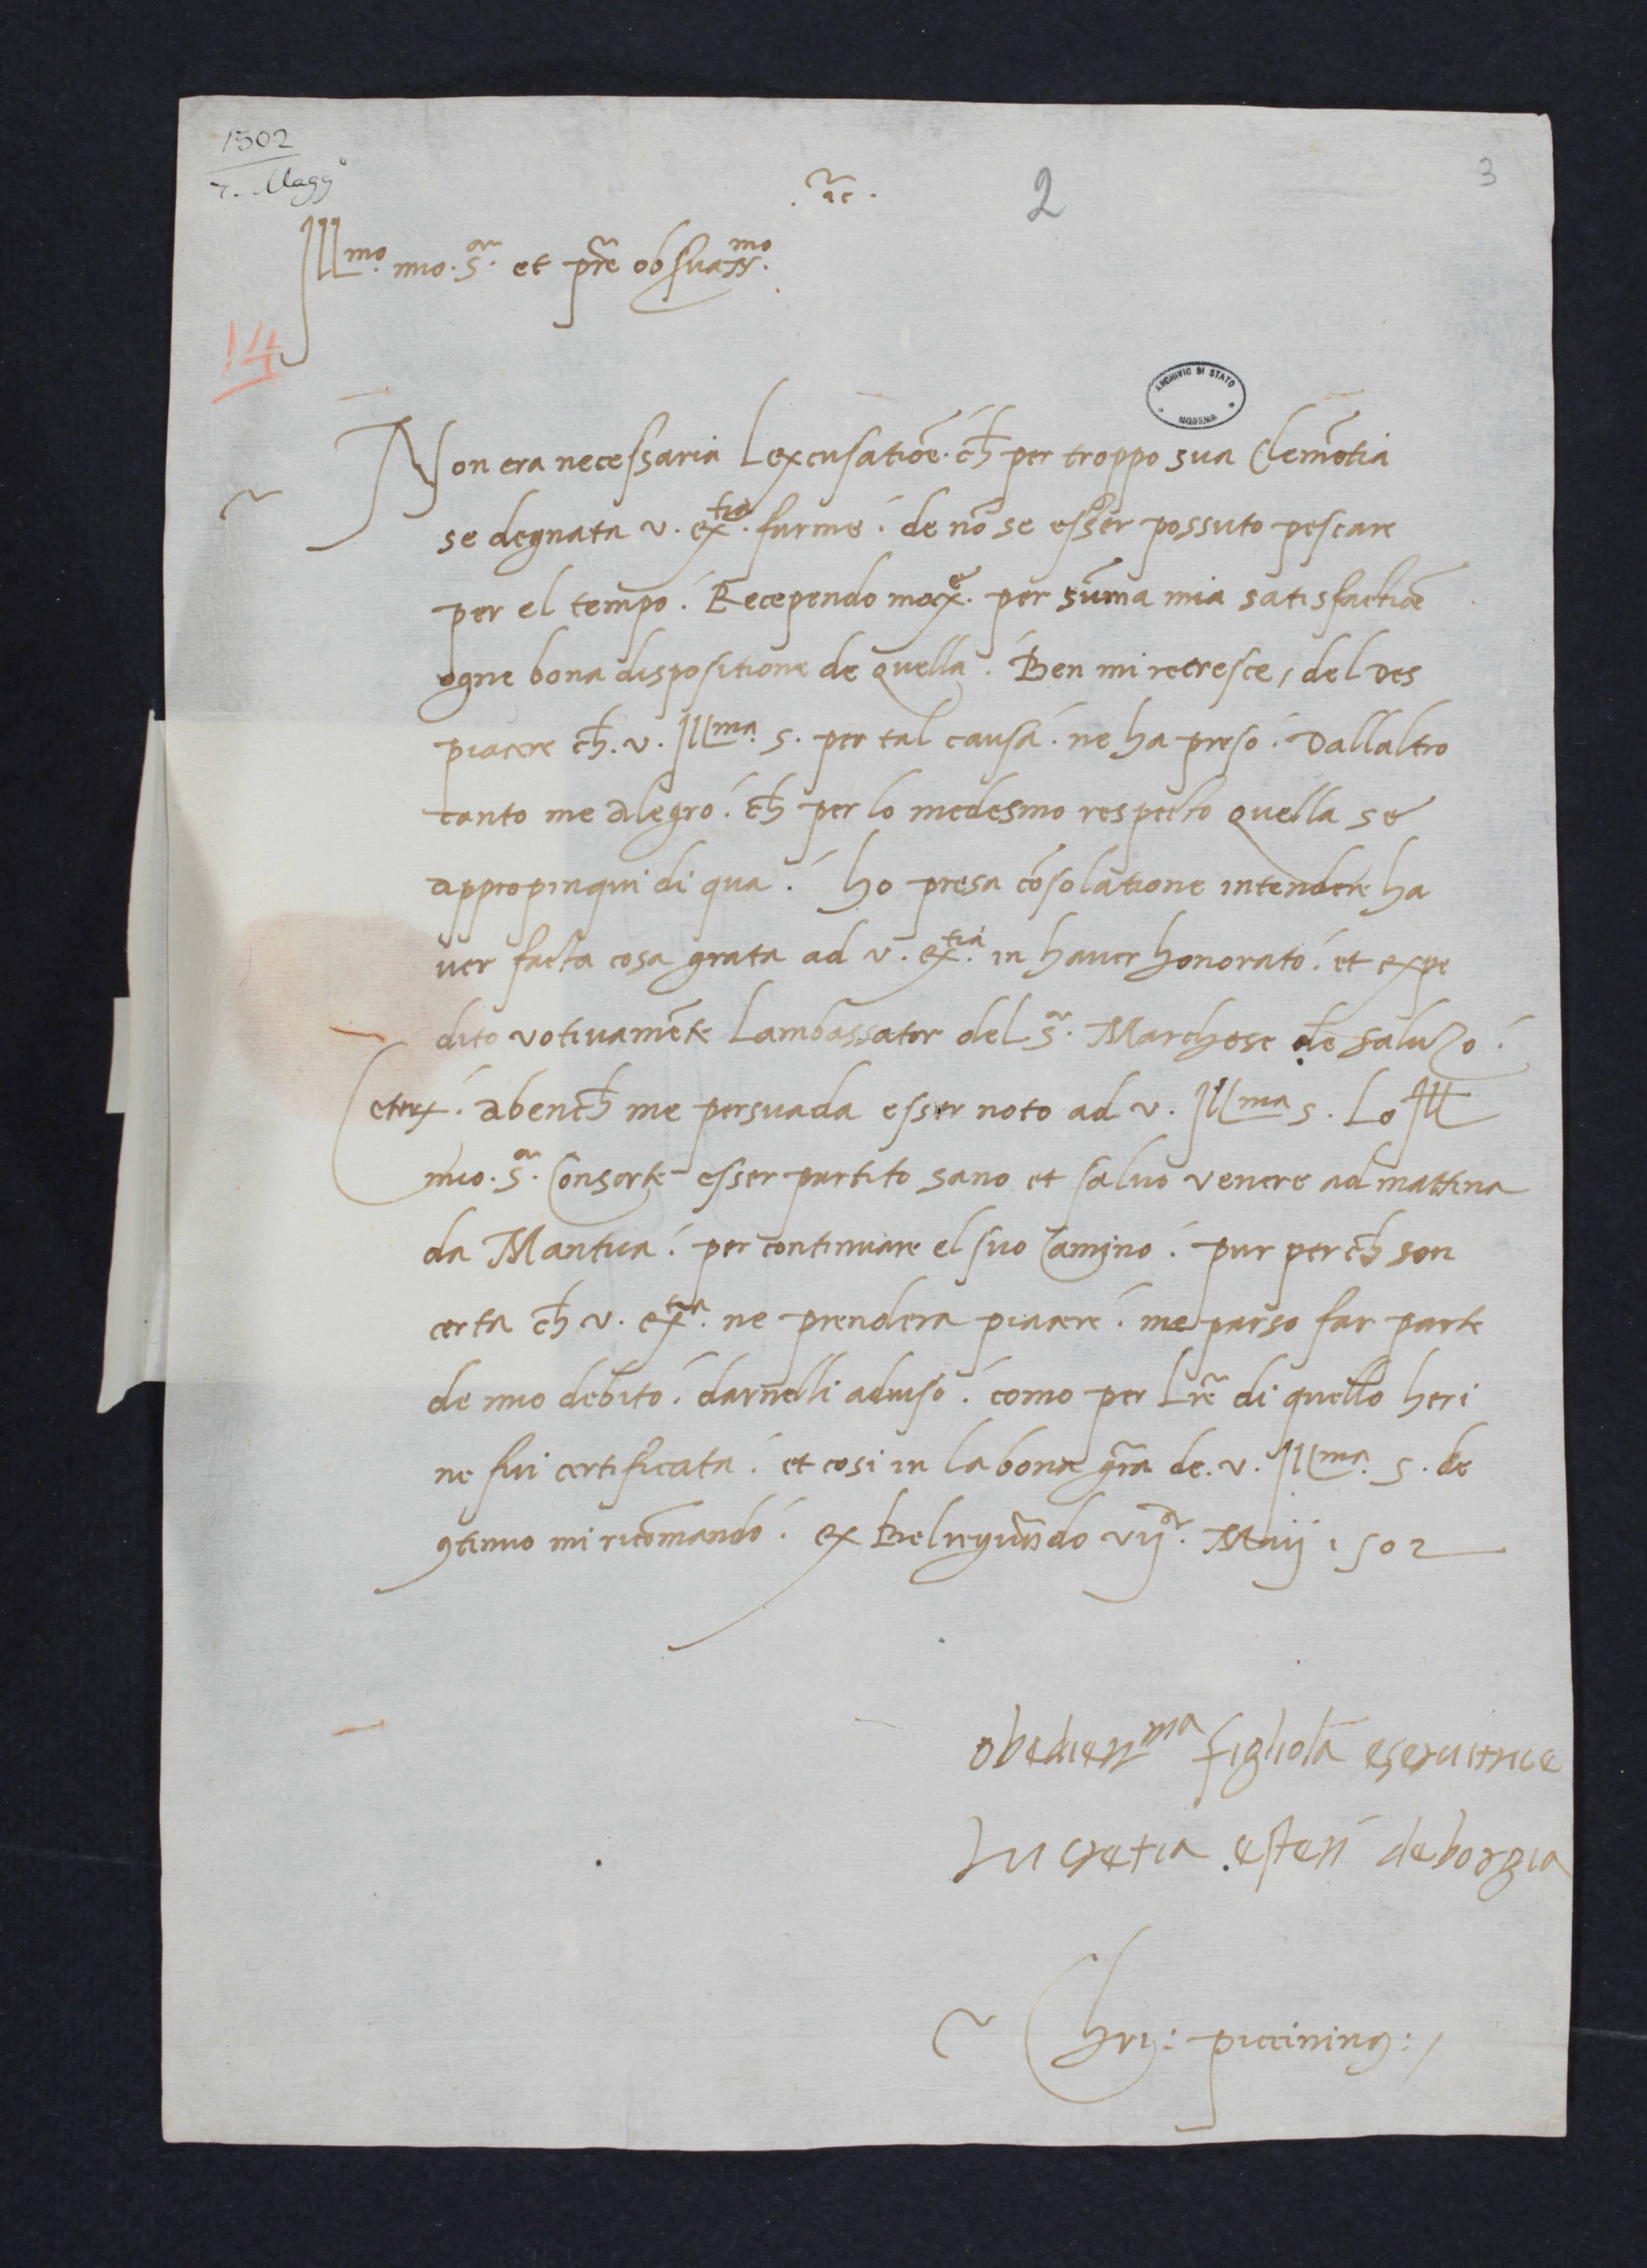 1502
7. Magg°
2
3
Ill^mo. mio. S^or. et pr̃e obſua^mo.
14
ARCHIVIO DI STATO
MODENA
Non era neceſsaria Lexcusatiõe. ch̃ per troppo sua Clemẽtia
se degnata v. ex^tia. farme. de nõ se eſser possuto peſcare
per el tempo. Recependo max^e. per sũma mia satisfactiõe
ogne bona dispositione de quella. Ben mi recreſce, del Des
piacere ch̃. v. Ill^ma. S. per tal causa. ne ha preso. Dallaltro
canto me alegro. ch̃ per lo medesmo respecto quella se
appropinqui di qua. ho presa cõsolatione intendere ha
uer facta cosa grata ad v. ex^tia. in hauer honorato. et expe
dito votiuamẽte Lambassator del S^or. Marchese de Saluzo.
Ceterx. abench̃ me persuada esser noto ad v. Ill^ma S. Lo Ill
mio. S^or. Consorte esser partito sano et saluo venere ad mattina
da Mantua. per continuare el suo Camino. pur perch̃ son
certa ch̃ v. ex^tia. ne prendera piacere. me parso far parte
de mio debito. darnelli aduiso. como per Lr̃e di quello heri
ne fui certificata. et cosi in la bona gr̃a de. v. Ill^ma. S. de
9tinuo mi ricõmando. ex Belreguardo vij^o. Maij 1502
obedien^ma figliola eseruitrice
lucretia esten deborgia
Chri: piccinin9:/